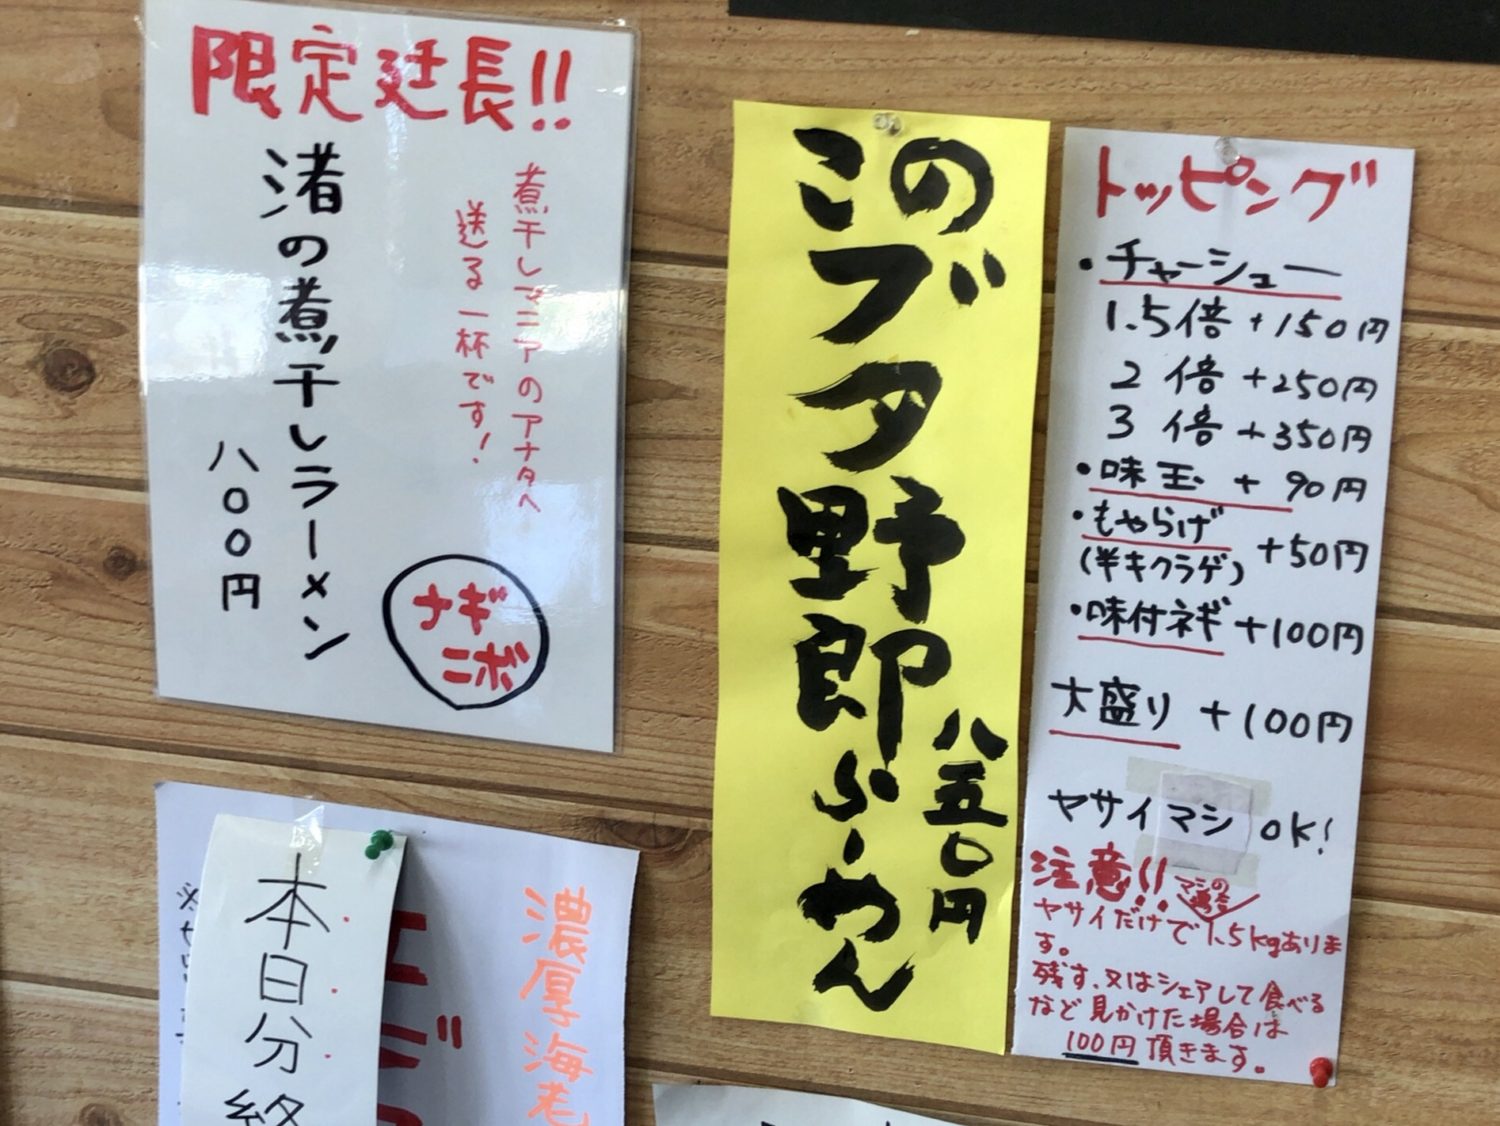 限定延長!!
煮干しマニアのアナタへ
送る一杯です!
渚の煮干しラーメン
八〇〇円
ナギ
ニボ
このブタ野郎らーめん
八五〇円
トッピング
・チャーシュー
1.5倍 +150円
2倍 +250円
3倍 +350円
・味玉 + 90円
・もやらげ +50円
(半キクラゲ)
・味付ネギ +100円
大盛り +100円
ヤサイマシ OK!
注意!! マシの場合
ヤサイだけで1.5kgありま
す。
残す、又はシェアして食べる
など見かけた場合は
100円頂きます。
濃厚海老
本日分終